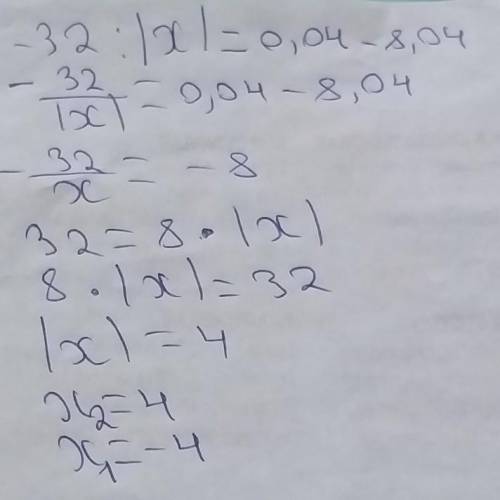 -32 : |x| = 0,04 - 8,04
- 32/|x| = 0,04 - 8,04
- 32/x = - 8
32 = 8 · |x|
8 · |x| = 32
|x| = 4
x₂ = 4
x₁ = -4